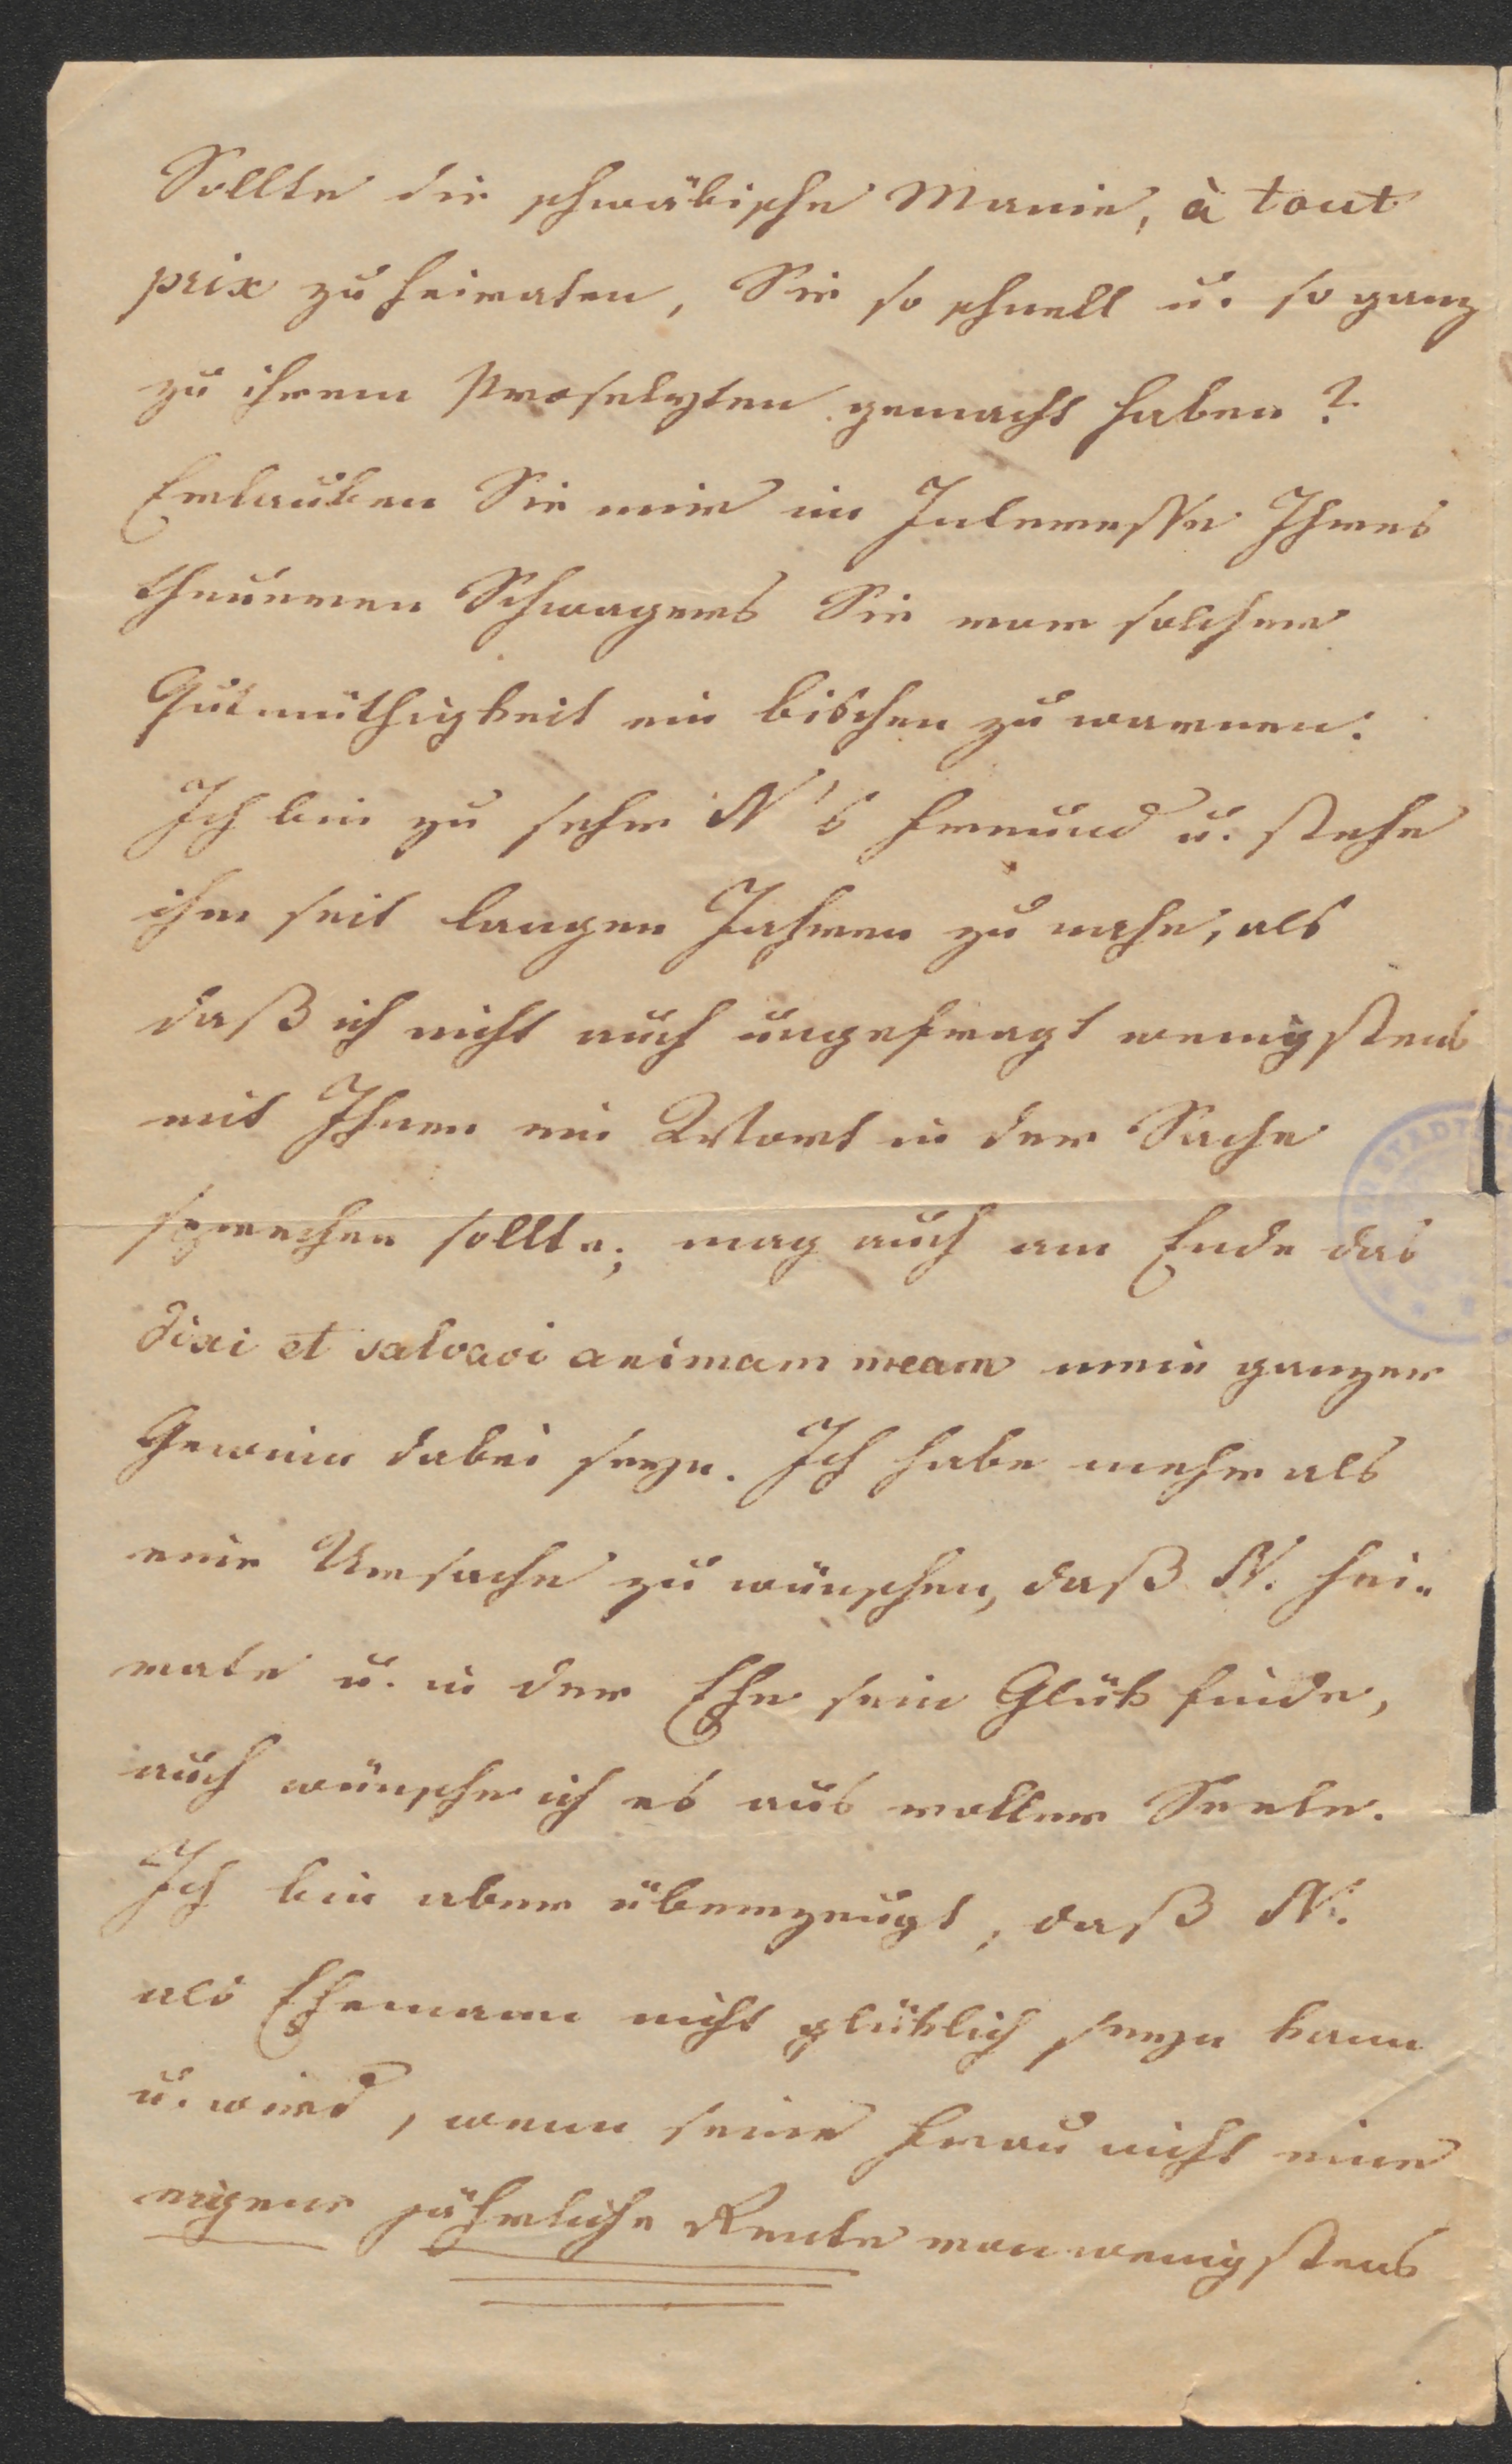 Sollte die schwäbische Manie, à tout
prix zu heiraten, Sie so schnell u. so ganz
zu ihrem Proselyten gemacht haben?
Erlauben Sie mir im Interesse Ihres
theueren Schwagers Sie vor solcher
Gutmüthigkeit ein bischen zu warnen.
Ich bin zu sehr N's Freund u. stehe
ihm seit langen Jahren zu nahe, als
daß ich nicht auch ungefragt wenigstens
mit Ihnen ein Wort in der Sache
sprechen sollte; mag auch am Ende das
dixi et salvavi animam meam mein ganzer
Gewinn dabei seyn. Ich habe mehr als
eine Ursache zu wünschen, daß N. hei-
rate u. in der Ehe sein Glük finde,
auch wünsche ich es aus voller Seele.
Ich bin aber überzeugt, daß N.
als Ehemann nicht glüklich seyn kann
u. wird, wenn seine Frau nicht eine
eigene jährliche Rente von wenigstens